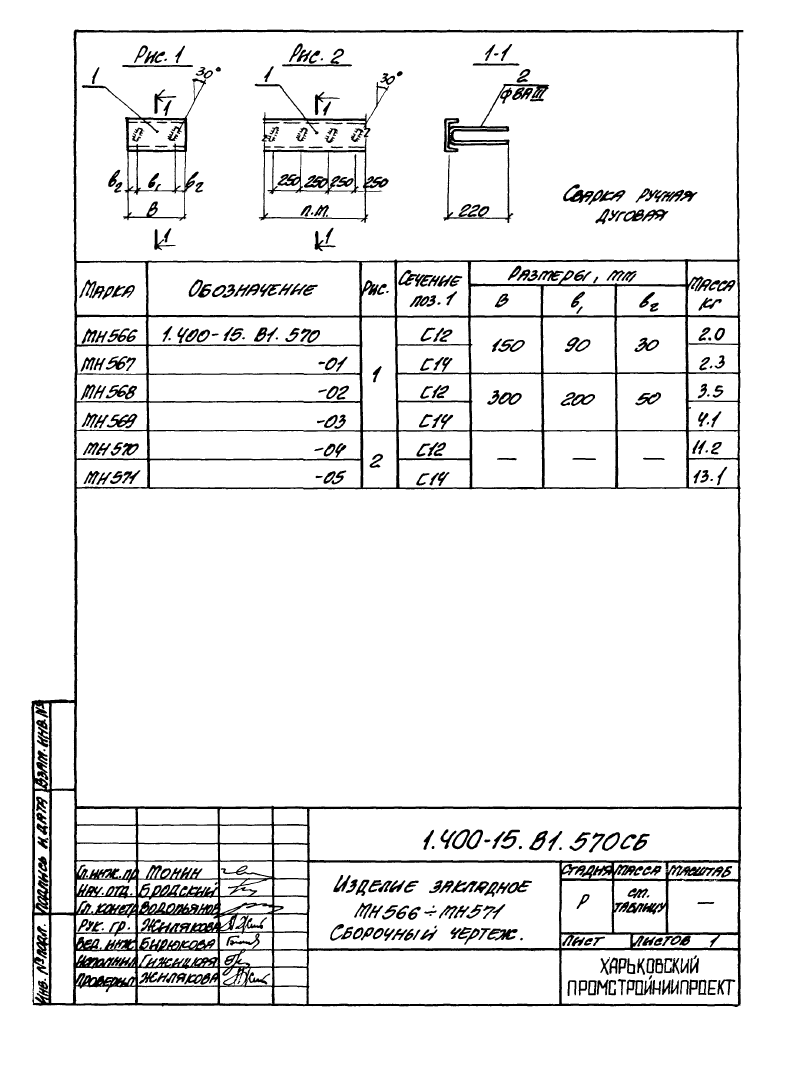 Рис. 1 Рис. 2 1-1
1 30° 1 30° 2
ф8АIII
1 1
в2 в1 в2 250 250 250 250
В п.м. 220
1 1
Сварка ручная
дуговая
Марка Обозначение Рис. Сечение поз. 1 Размеры, мм Масса кг
В в1 в2
МН566 1.400-15. В1. 570 1 С12 150 90 30 2.0
МН567 -01 С14 2.3
МН568 -02 С12 300 200 50 3.5
МН569 -03 С14 4.1
МН570 -04 2 С12 — — — 11.2
МН571 -05 С14 13.1
Взам. инв. №
Подпись и дата
Инв. № подл.
1.400-15. В1. 570СБ
Гл. инж. пр Монин
Нач. отд. Бродский
Гл. констр Водопьянов
Рук. гр. Жилякова
Вед. инж Бирюкова
Исполнил Гижицкая
Проверил Жилякова
Изделие закладное
МН566÷МН571
Сборочный чертеж.
Стадия Масса Масштаб
Р см. таблицу —
Лист Листов 1
ХАРЬКОВСКИЙ
ПРОМСТРОЙНИИПРОЕКТ